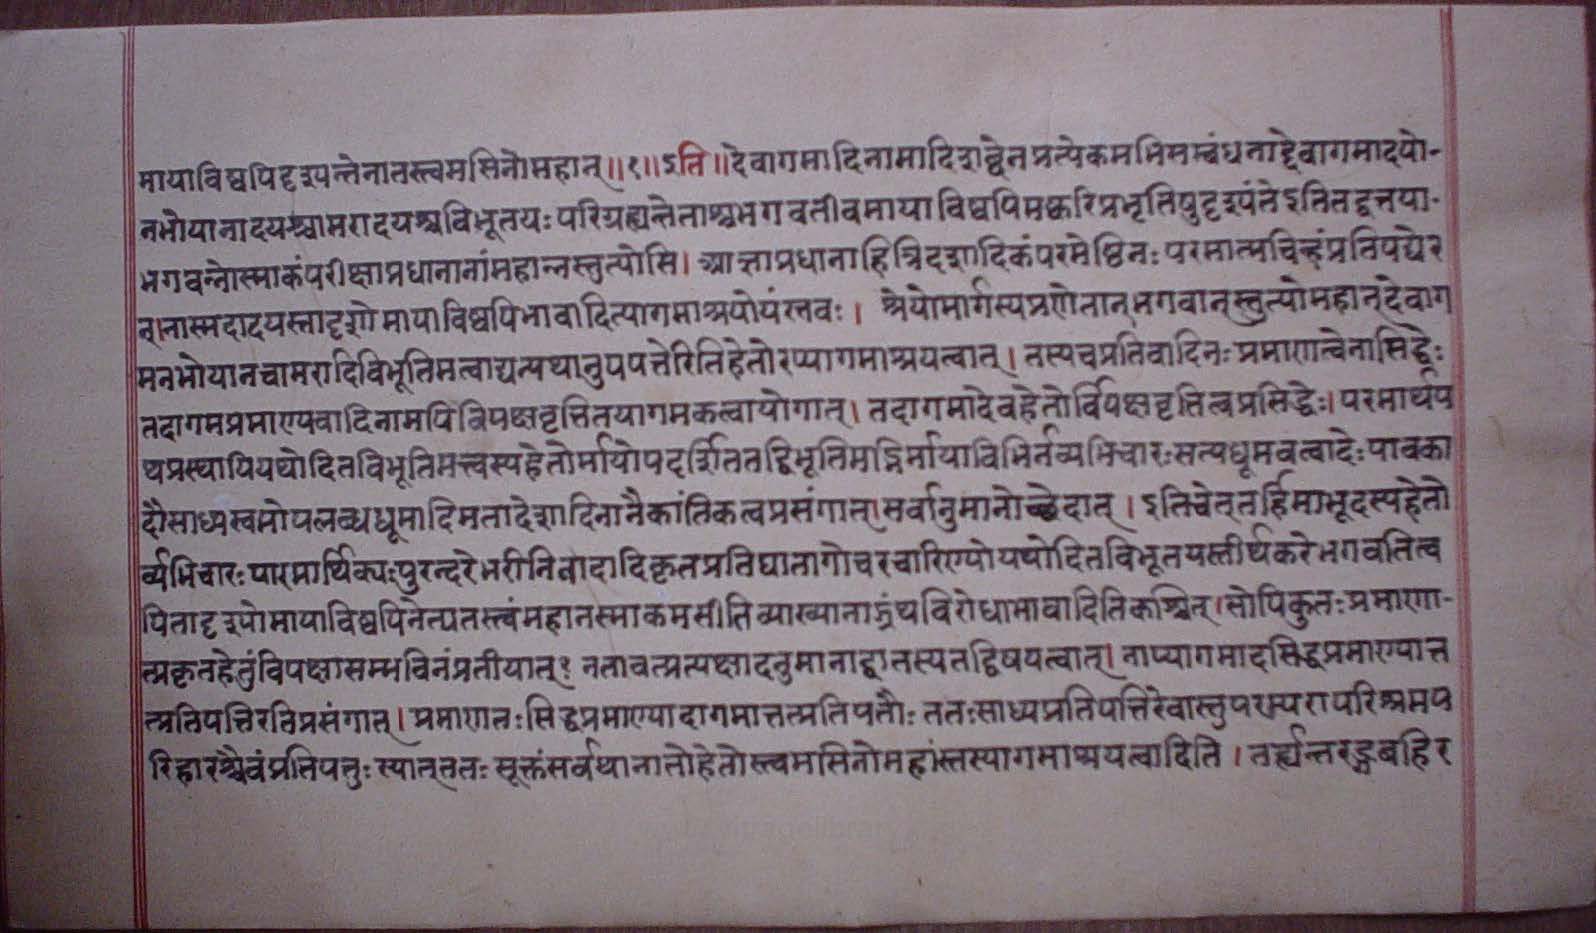 मायाविष्वपिदृश्यन्तेनातस्त्वमसिनोमहान्॥१॥इति॥देवागमादिनामादिशब्देनप्रत्येकमभिसम्बंधनाद्देवागमादयो-
नभोयानादयश्चामरादयश्चविभूतयःपरिगृह्यन्तेताश्चभगवतीवमायाविष्वपिमस्करिप्रभृतिषुदृश्यंतेइतितद्वत्तया-
भगवन्नोस्माकंपरीक्षाप्रधानानांमहान्नस्तुत्योसि। आज्ञाप्रधानाहित्रिदशादिकंपरमेष्ठिनःपरमात्मचिन्हंप्रतिपद्येर
न्।नास्मदादयस्तादृशोमायाविष्वपिभावादित्यागमाश्रयोयंस्तवः। श्रेयोमार्गस्यप्रणेतान्भगवान्स्तुत्योमहान्देवाग
मनभोयानचामरादिविभूतिमत्वाद्यत्यथानुपपत्तेरितिहेतोरप्यागमाश्रयत्वात्। तस्यचप्रतिवादिनःप्रमाणत्वेनासिद्धेः
तदागमप्रमाण्यवादिनामपिविपक्षवृत्तितयागमकत्वायोगात्। तदागमादेवहेतोर्विपक्षवृत्तित्वप्रसिद्धेः। परमार्थप
थप्रस्थायियथोदितविभूतिमत्त्वस्यहेतोर्मायोपदर्शिततद्विभूतिमद्भिर्मायाविभिर्नव्यभिचारःसत्यधूमवत्वादेःपावका
दौसाध्यस्वमोपलब्धधूमादिमतादेशादिनानैकांतिकत्वप्रसंगात्।सर्वानुमानोच्छेदात्। इतिचेत्तर्हिमाभूदस्यहेतो
र्व्यभिचारःपारमार्थिक्यःपुरन्दरेभरीनिनादादिकृतप्रतिघातागोचरचारिण्योयथोदितविभूतयस्तीर्थकरेभगवतित्व
यितादृश्योमायाविष्वपिनेत्यतस्त्वंमहानस्माकमसीतिव्याख्यानाद्ग्रंथविरोधाभावादितिकश्चित्।सोपिकुतःप्रमाणा-
त्प्रकृतहेतुंविपक्षासम्भविनंप्रतीयात्? नतावत्प्रत्यक्षादनुमानाद्वातस्यतद्विषयत्वात्। नाप्यागमादसिद्धप्रमाण्यात्त
त्प्रतिपत्तिरतिप्रसंगात्। प्रमाणतःसिद्धप्रमाण्यादागमात्तत्प्रतिपतौः ततःसाध्यप्रतिपत्तिरेवास्तुपरम्परापरिश्रमप
रिहारश्चैवंप्रतिपत्तुः स्यात्ततः सूक्तंसर्वथानातोहेतोस्त्वमसिनोमहांस्तस्यागमाश्रयत्वादिति। तर्ह्यन्तरङ्गबहिर